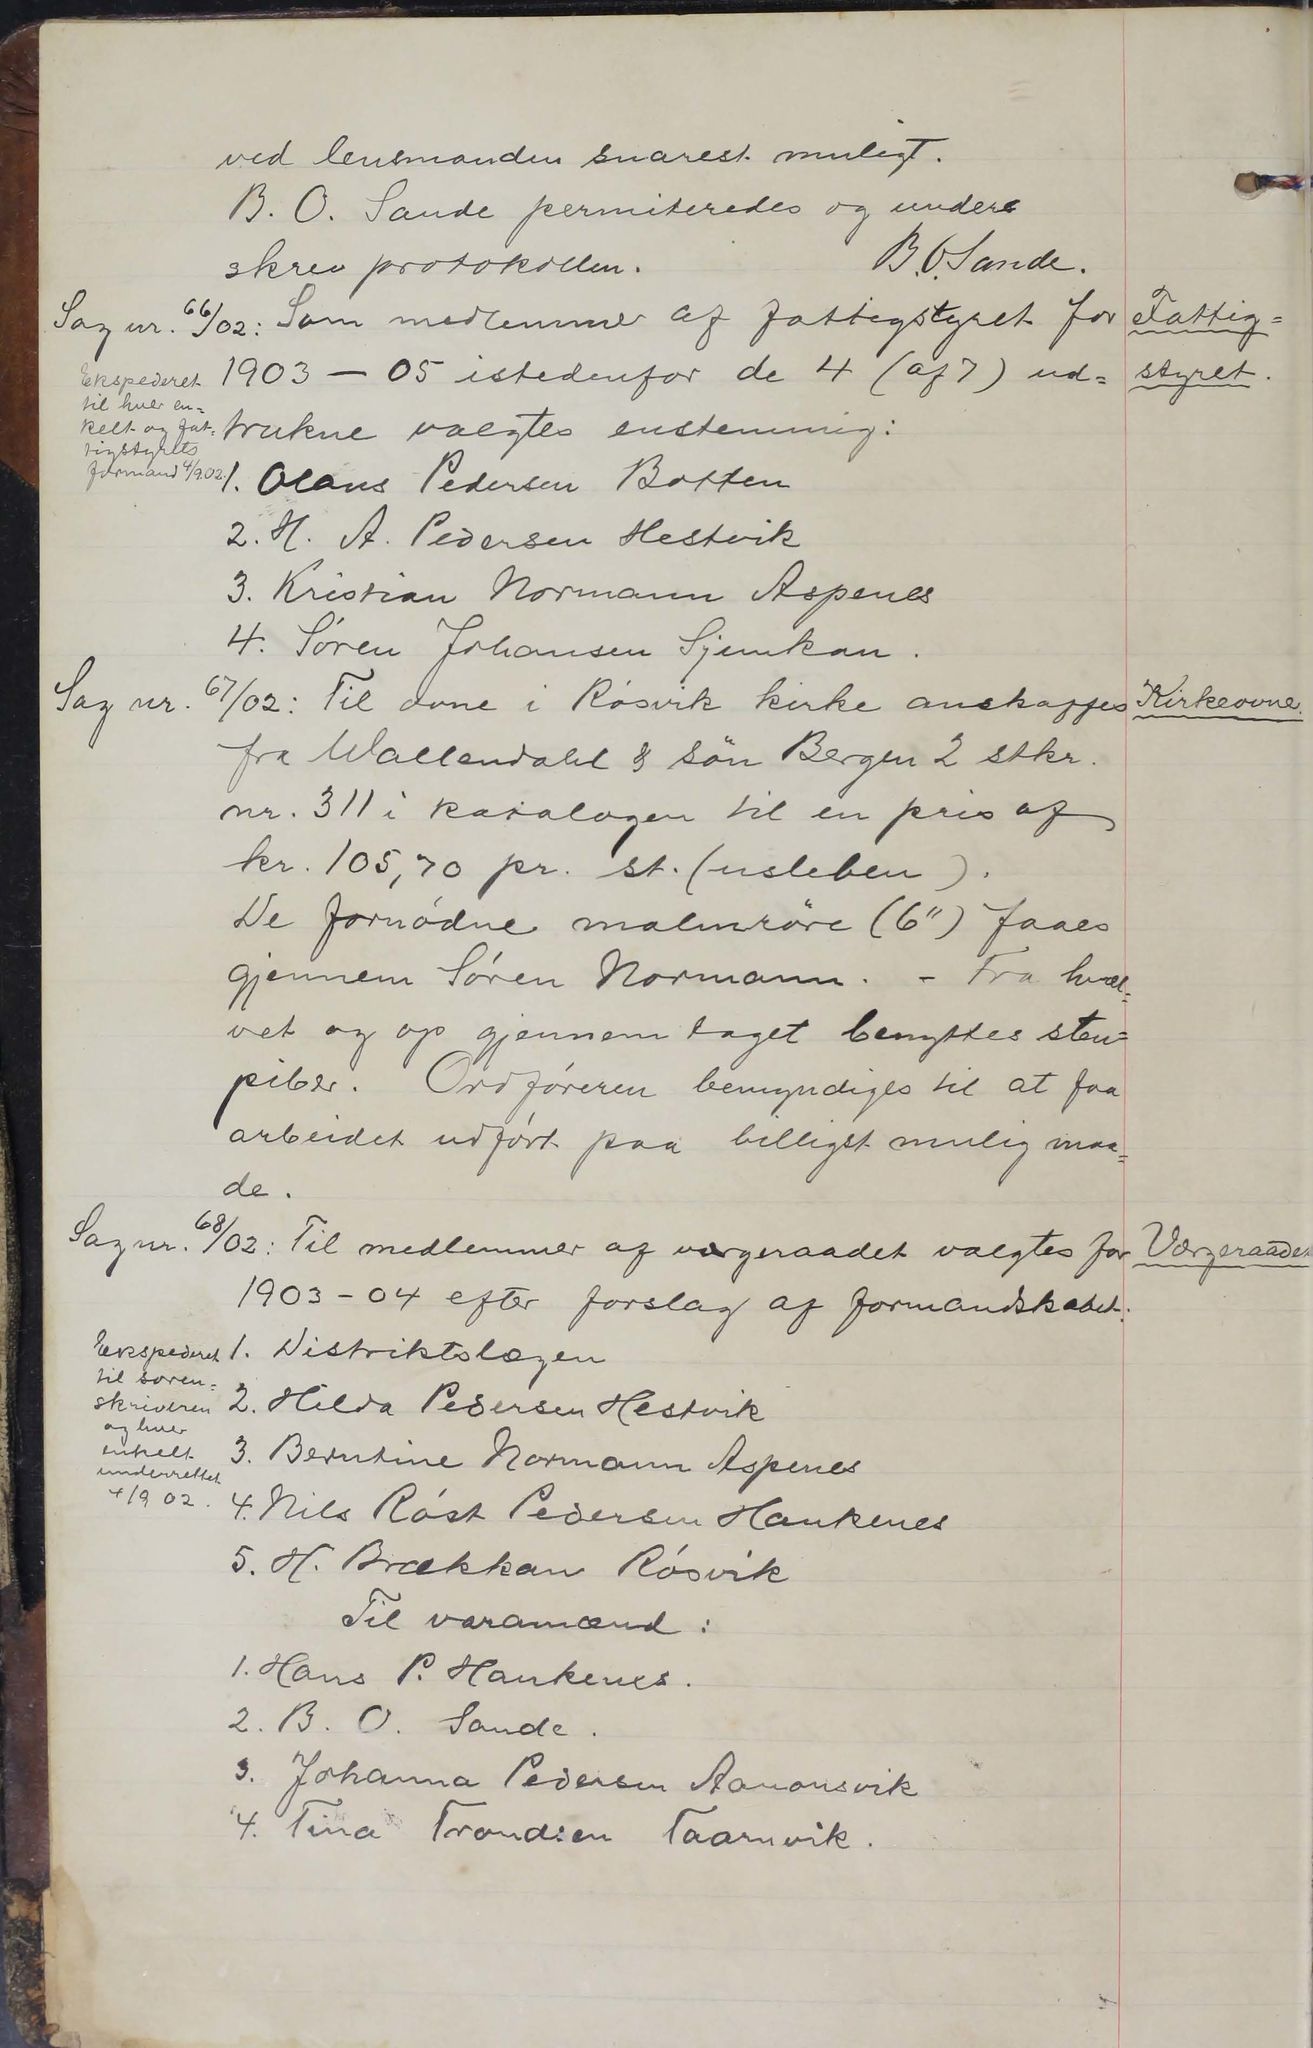 ved lensmanden snarest muligt.
B. O. Sande permiteredes og under=
skrev protokollen. B. O. Sande.
Sag nr. 66/02: Som medlemmer af fattigstyret for
Fattig=
styret.
1903 — 05 istedenfor de 4 (af 7) ud=
trukne valgtes enstemmig:
Ekspederet
til hver en=
kelt og fat=
tigstyrets
formand 4/9 02.
1. Olaus Pedersen Botten
2. H. A. Pedersen Hestvik
3. Kristian Normann Aspenes
4. Sören Johansen Sjunkan.
Sag nr. 67/02: Til ovne i Rösvik kirke anskaffes
Kirkeovne.
fra Wallendahl & sön Bergen 2 stkr.
nr. 311 i katalogen til en pris af
kr. 105,70 pr. st. (usleben).
De fornödne malmröre (6") faaes
gjennem Sören Normann. - Fra hvæl=
vet og op gjennem taget benyttes sten=
piber. Ordföreren bemyndiges til at faa
arbeidet udfört paa billigst mulig maa=
de.
Sag nr. 68/02: Til medlemmer af værgeraadet valgtes for
Værgeraadet
1903 - 04 efter forslag af formandskabet:
Ekspederet
til soren=
skriveren
og hver
enkelt
underrettet
4/9 02.
1. Distriktslægen
2. Hilda Pedersen Hestvik
3. Berntine Normann Aspenes
4. Nils Röst Pedersen Hankenes
5. H. Brækkan Rösvik
Til varamænd:
1. Hans P. Hankenes.
2. B. O. Sande.
3. Johanna Pedersen Aanonsvik
4. Tina Trondsen Taarnvik.